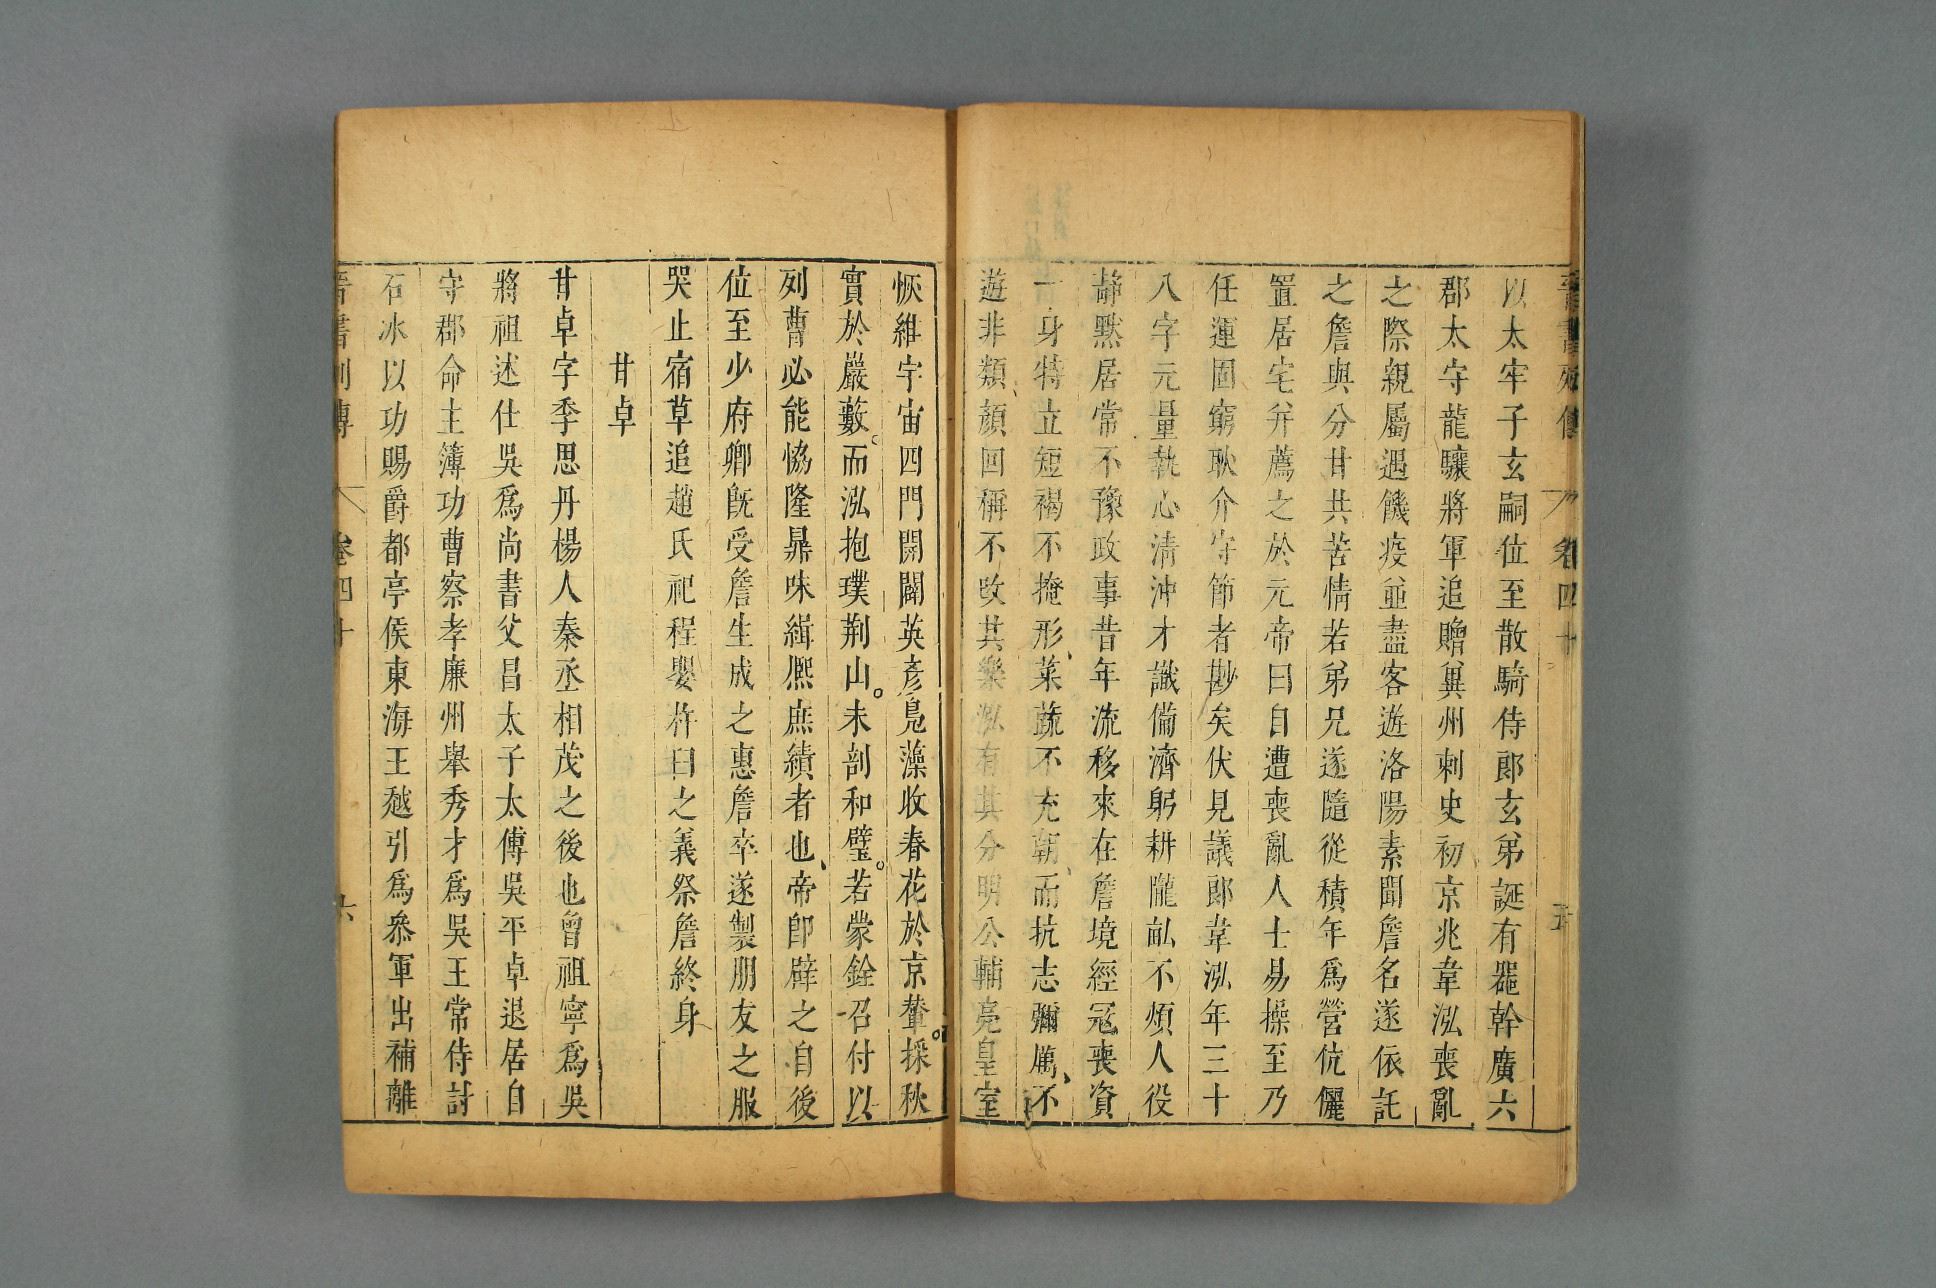 晉書列傳 卷四十 五
以太牢子玄嗣位至散騎侍郎玄弟誕有器幹廣六
郡太守龍驤將軍追贈兾州刺史初京兆韋泓喪亂
之際親屬遇饑疫並盡客遊洛陽素聞詹名遂依託
之詹與分甘共苦情若弟兄遂隨從積年爲營伉儷
置居宅并薦之於元帝曰自遭喪亂人士易操至乃
任運固窮耿介守節者尠矣伏見議郎韋泓年三十
八字元量執心清沖才識備濟躬耕隴畝不煩人役
靜默居常不豫政事昔年流移來在詹境經冦喪資
一身特立短褐不掩形、菜蔬不充朝、而抗志彌厲、不
遊非類、顏回稱不改其樂泓有其分明公輔亮皇室
恢維宇宙四門開闢英彥鳧藻收春花於京輦。採秋
實於嚴藪。而泓抱璞荆山。未剖和璧。若蒙銓召付以
列曹必能恊隆鼎味緝熈庶績者也、帝即辟之自後
位至少府卿旣受詹生成之惠詹卒遂製朋友之服
哭止宿草追趙氏祀程嬰杵臼之義祭詹終身
甘卓
甘卓字季思丹楊人秦丞相茂之後也曾祖寧爲吳
將祖述仕吳爲尚書父昌太子太傅吳平卓退居自
守郡命主簿功曹察孝廉州舉秀才爲吳王常侍討
石冰以功賜爵都亭侯東海王越引爲叅軍出補離
晉書列傳 卷四十 六